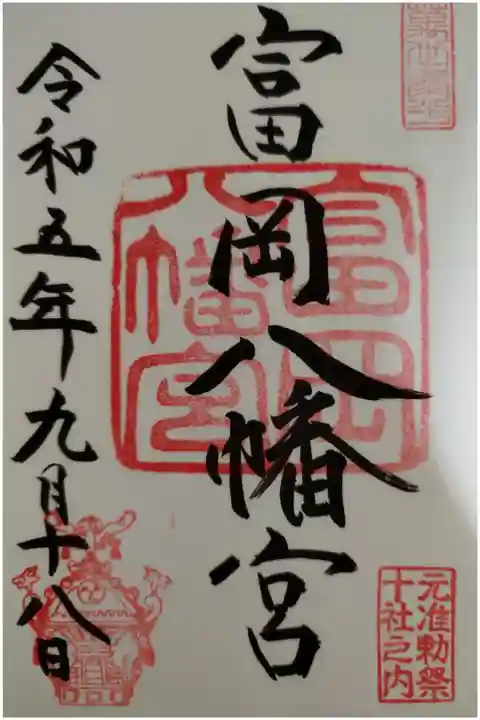 富岡八幡宮
富岡
八幡宮
元准勅祭
十社之内
令和五年九月十八日